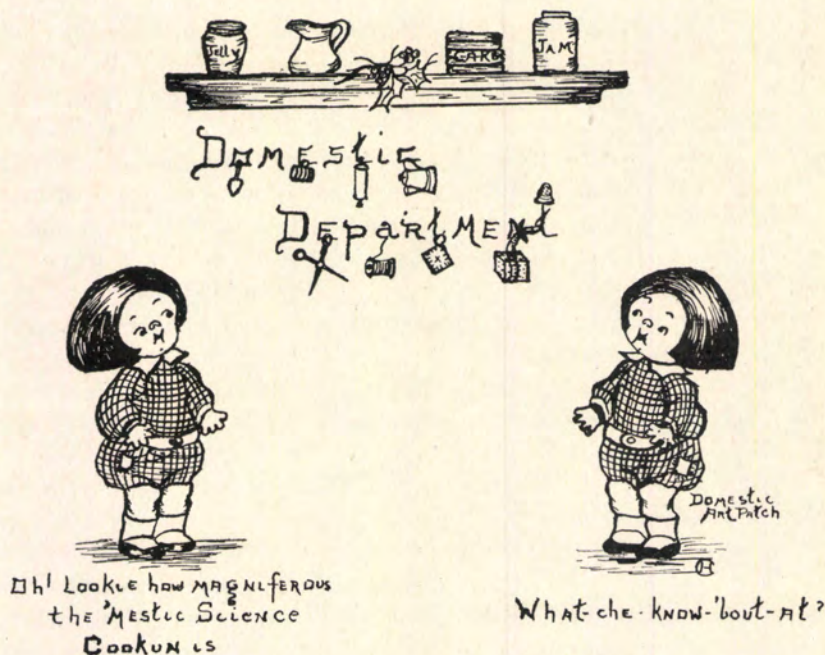 Jelly
CAKE
JAM
Domestic
Department
Domestic
Art Patch
Oh! Lookie how magniferous
the 'Mestic Science
Cookun is
What-che-know-'bout-at?